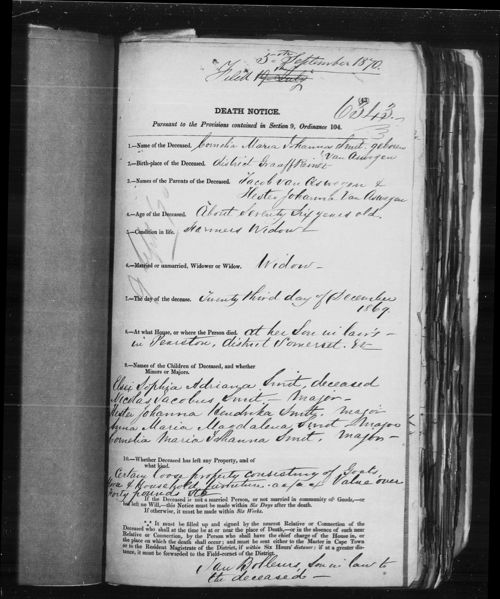 5th September 1870.
Filed 19th July
6343
DEATH NOTICE.
Pursuant to the Provisions contained in Section 9, Ordinance 104.
1.—Name of the Deceased. Cornelia Maria Johanna Smit, geboren
Van Aswegen
2.—Birth-place of the Deceased. District Graaff Reinet
3.—Names of the Parents of the Deceased. Jacob van Aswegen &
Hester Johanna Van Aswegen
4.—Age of the Deceased. About Seventy Six years old.
5.—Condition in life. Farmers Widow—
6.—Married or unmarried, Widower or Widow. Widow—
7.—The day of the decease. Twenty third day of December
1869.
8.—At what House, or where the Person died. at her Son in law's—
in Pearston, district Somerset. Et
9.—Names of the Children of Deceased, and whether
Minors or Majors.
Elsie Sophia Adriana Smit, deceased
Nicolas Jacobus Smit— major—
Hester Johanna Hendrika Smit, major
Anna Maria Magdalena Smit— major
Cornelia Maria Johanna Smit. major—
10.—Whether Deceased has left any Property, and of
what kind.
Certain loose property consisting of
& Household furniture. value over
Forty pounds Stg
If the Deceased is not a married Person, or not married in community of Goods,—or
has left no Will,—this Notice must be made within Six Days after the death.
If otherwise, it must be made within Six Weeks.
It must be filled up and signed by the nearest Relative or Connection of the
Deceased who shall at the time be at or near the place of Death,—or in the absence of such near
Relative or Connection, by the Person who shall have the chief charge of the House in, or
the place on which the death shall occur; and must be sent either to the Master in Cape Town
or to the Resident Magistrate of the District, if within Six Hours' distance: if at a greater dis-
tance, it must be forwarded to the Field-cornet of the District.
son in law to
the deceased—